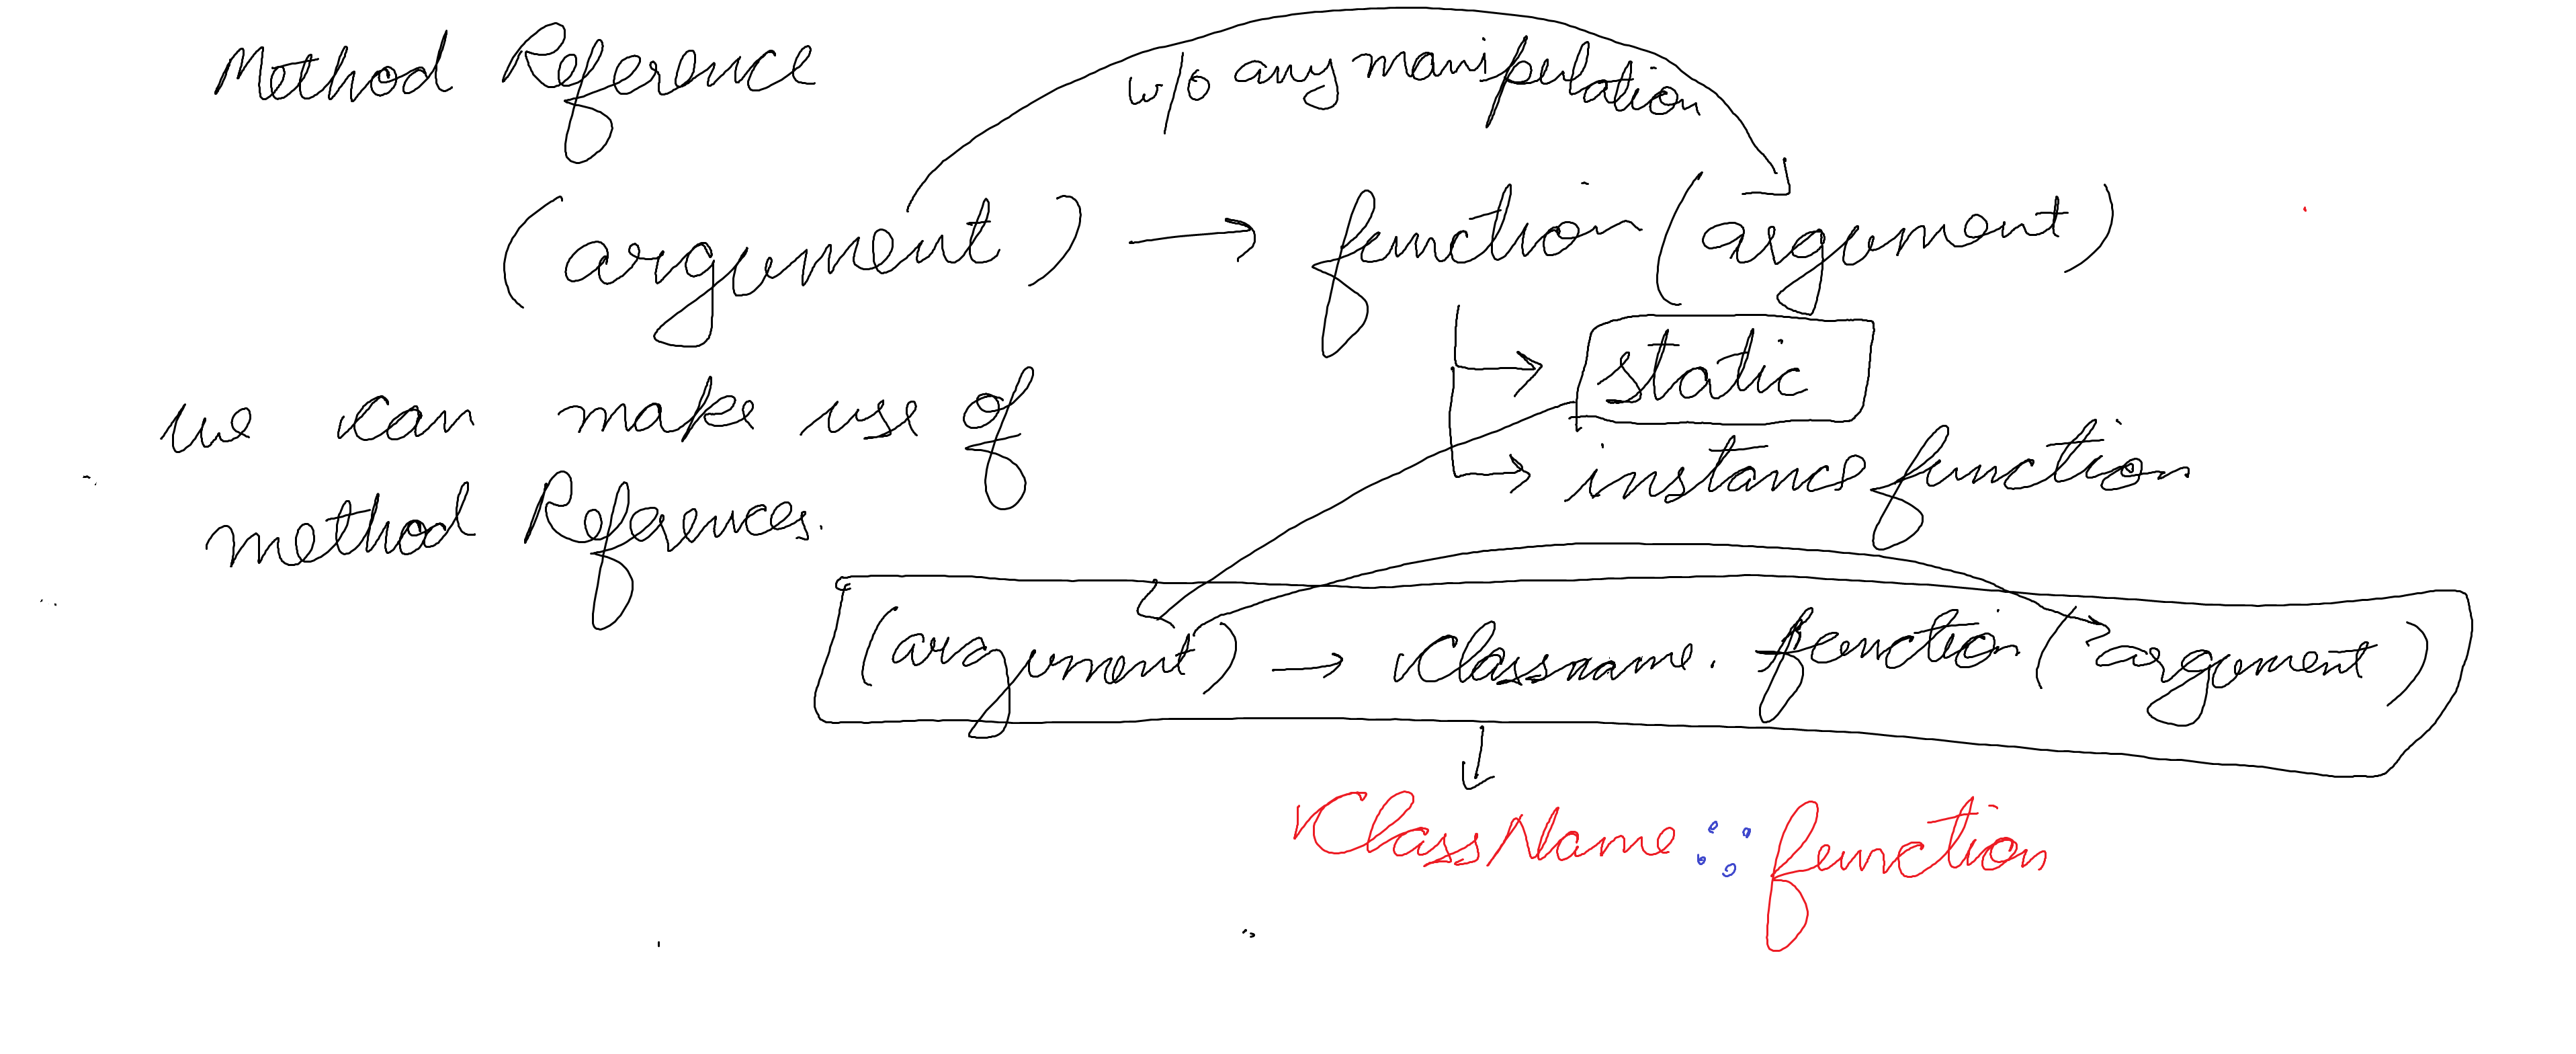 Method Reference
w/o any manipulation
(argument) → function (argument)
→ static
→ instance function
we can make use of
method References.
(argument) → Classname. function (argument)
ClassName :: function